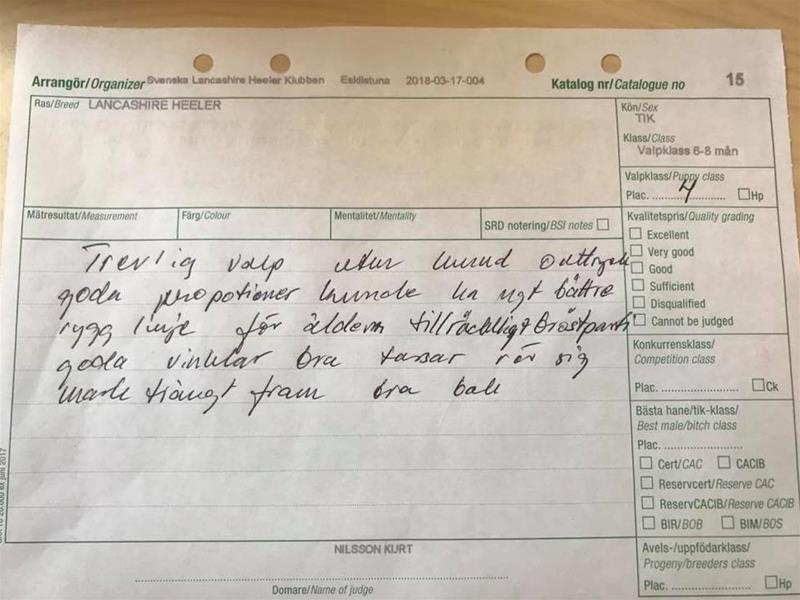 Arrangör/Organizer Svenska Lancashire Heeler Klubben Eskilstuna 2018-03-17-004 Katalog nr/Catalogue no 15
Ras/Breed LANCASHIRE HEELER
Kön/Sex
TIK
Klass/Class
Valpklass 6-8 mån
Valpklass/Puppy class
Plac. 4 Hp
Mätresultat/Measurement Färg/Colour Mentalitet/Mentality SRD notering/BSI notes
Kvalitetspris/Quality grading
Excellent
Very good
Good
Sufficient
Disqualified
Cannot be judged
Trevlig valp
goda propotioner kunde ha ngt bättre
rygg linje för åldern tillräckligt bröstparti
goda vinklar bra tassar rör sig
trångt fram bra bak
Konkurrensklass/
Competition class
Plac. Ck
Bästa hane/tik-klass/
Best male/bitch class
Plac.
Cert/CAC CACIB
Reservcert/Reserve CAC
ReservCACIB/Reserve CACIB
BIR/BOB BIM/BOS
Avels-/uppfödarklass/
Progeny/breeders class
Plac. Hp
NILSSON KURT
Domare/Name of judge